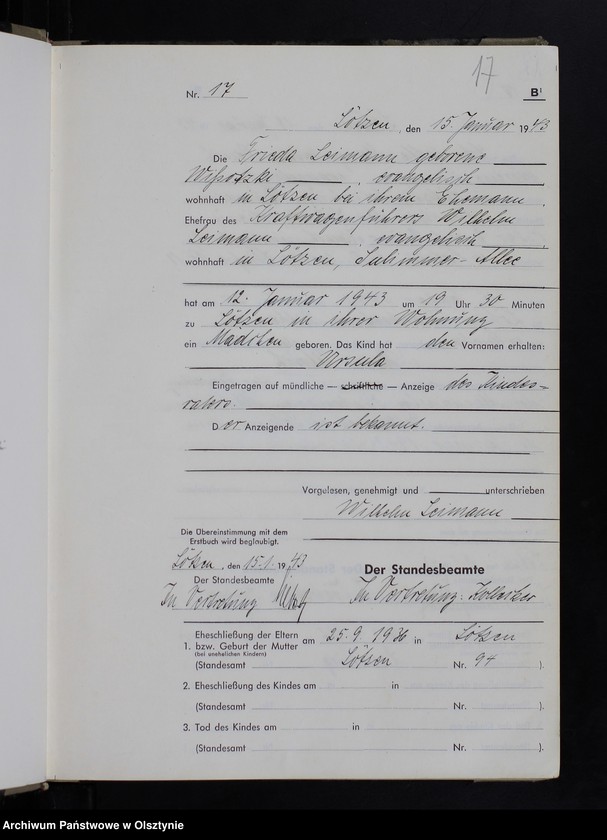 17
Nr. 17
B¹
Lötzen, den 15. Januar 1943
Die Frieda Leimann geborene
evangelisch
wohnhaft in Lötzen bei ihrem Ehemann,
Ehefrau des Kraftwagenführers Wilhelm
Leimann, evangelisch
wohnhaft in Lötzen, Sulimmer-Allee
hat am 12. Januar 1943 um 19 Uhr 30 Minuten
zu Lötzen in ihrer Wohnung
ein Mädchen geboren. Das Kind hat den Vornamen erhalten:
Ursula
Eingetragen auf mündliche — schriftliche — Anzeige des Kindes-
vaters.
Der Anzeigende ist bekannt.
Vorgelesen, genehmigt und unterschrieben
Wilhelm Leimann
Die Übereinstimmung mit dem
Erstbuch wird beglaubigt.
Lötzen, den 15.1.1943
Der Standesbeamte
In Vertretung
Der Standesbeamte
In Vertretung:
Eheschließung der Eltern
1. bzw. Geburt der Mutter am 25.9.1936 in Lötzen
(bei unehelichen Kindern)
(Standesamt Lötzen Nr. 94).
2. Eheschließung des Kindes am in
(Standesamt Nr. ).
3. Tod des Kindes am in
(Standesamt Nr. ).
Archiwum Państwowe w Olsztynie